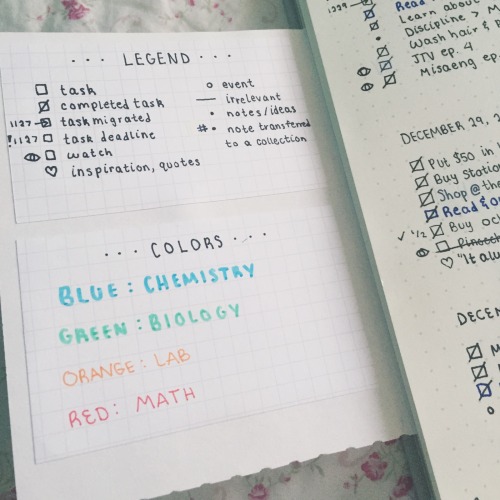 ··· LEGEND ···
□ task
completed task
1127 task migrated
!1127 □ task deadline
□ watch
♡ inspiration, quotes
○ event
— irrelevant
• notes/ideas
#• note transferred
to a collection
··· COLORS ···
BLUE: CHEMISTRY
GREEN: BIOLOGY
ORANGE: LAB
RED: MATH
1229
Read
Learn about
Discipline > M
Wash hair &
JTV ep. 4
Misaeng ep.
DECEMBER 29, 2
Put $50 in
Buy statio
Shop @ the
Read
✓ 1/2 Buy
♡ "It
DECEM